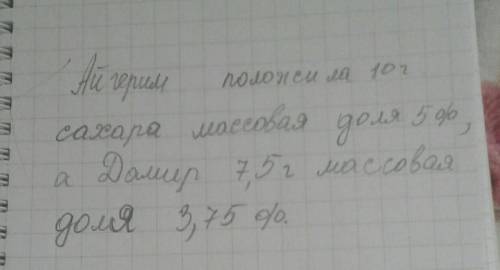 Айгерим положила 10 г
сахара массовая доля 5%,
а Дамир 7,5 г массовая
доля 3,75 %.